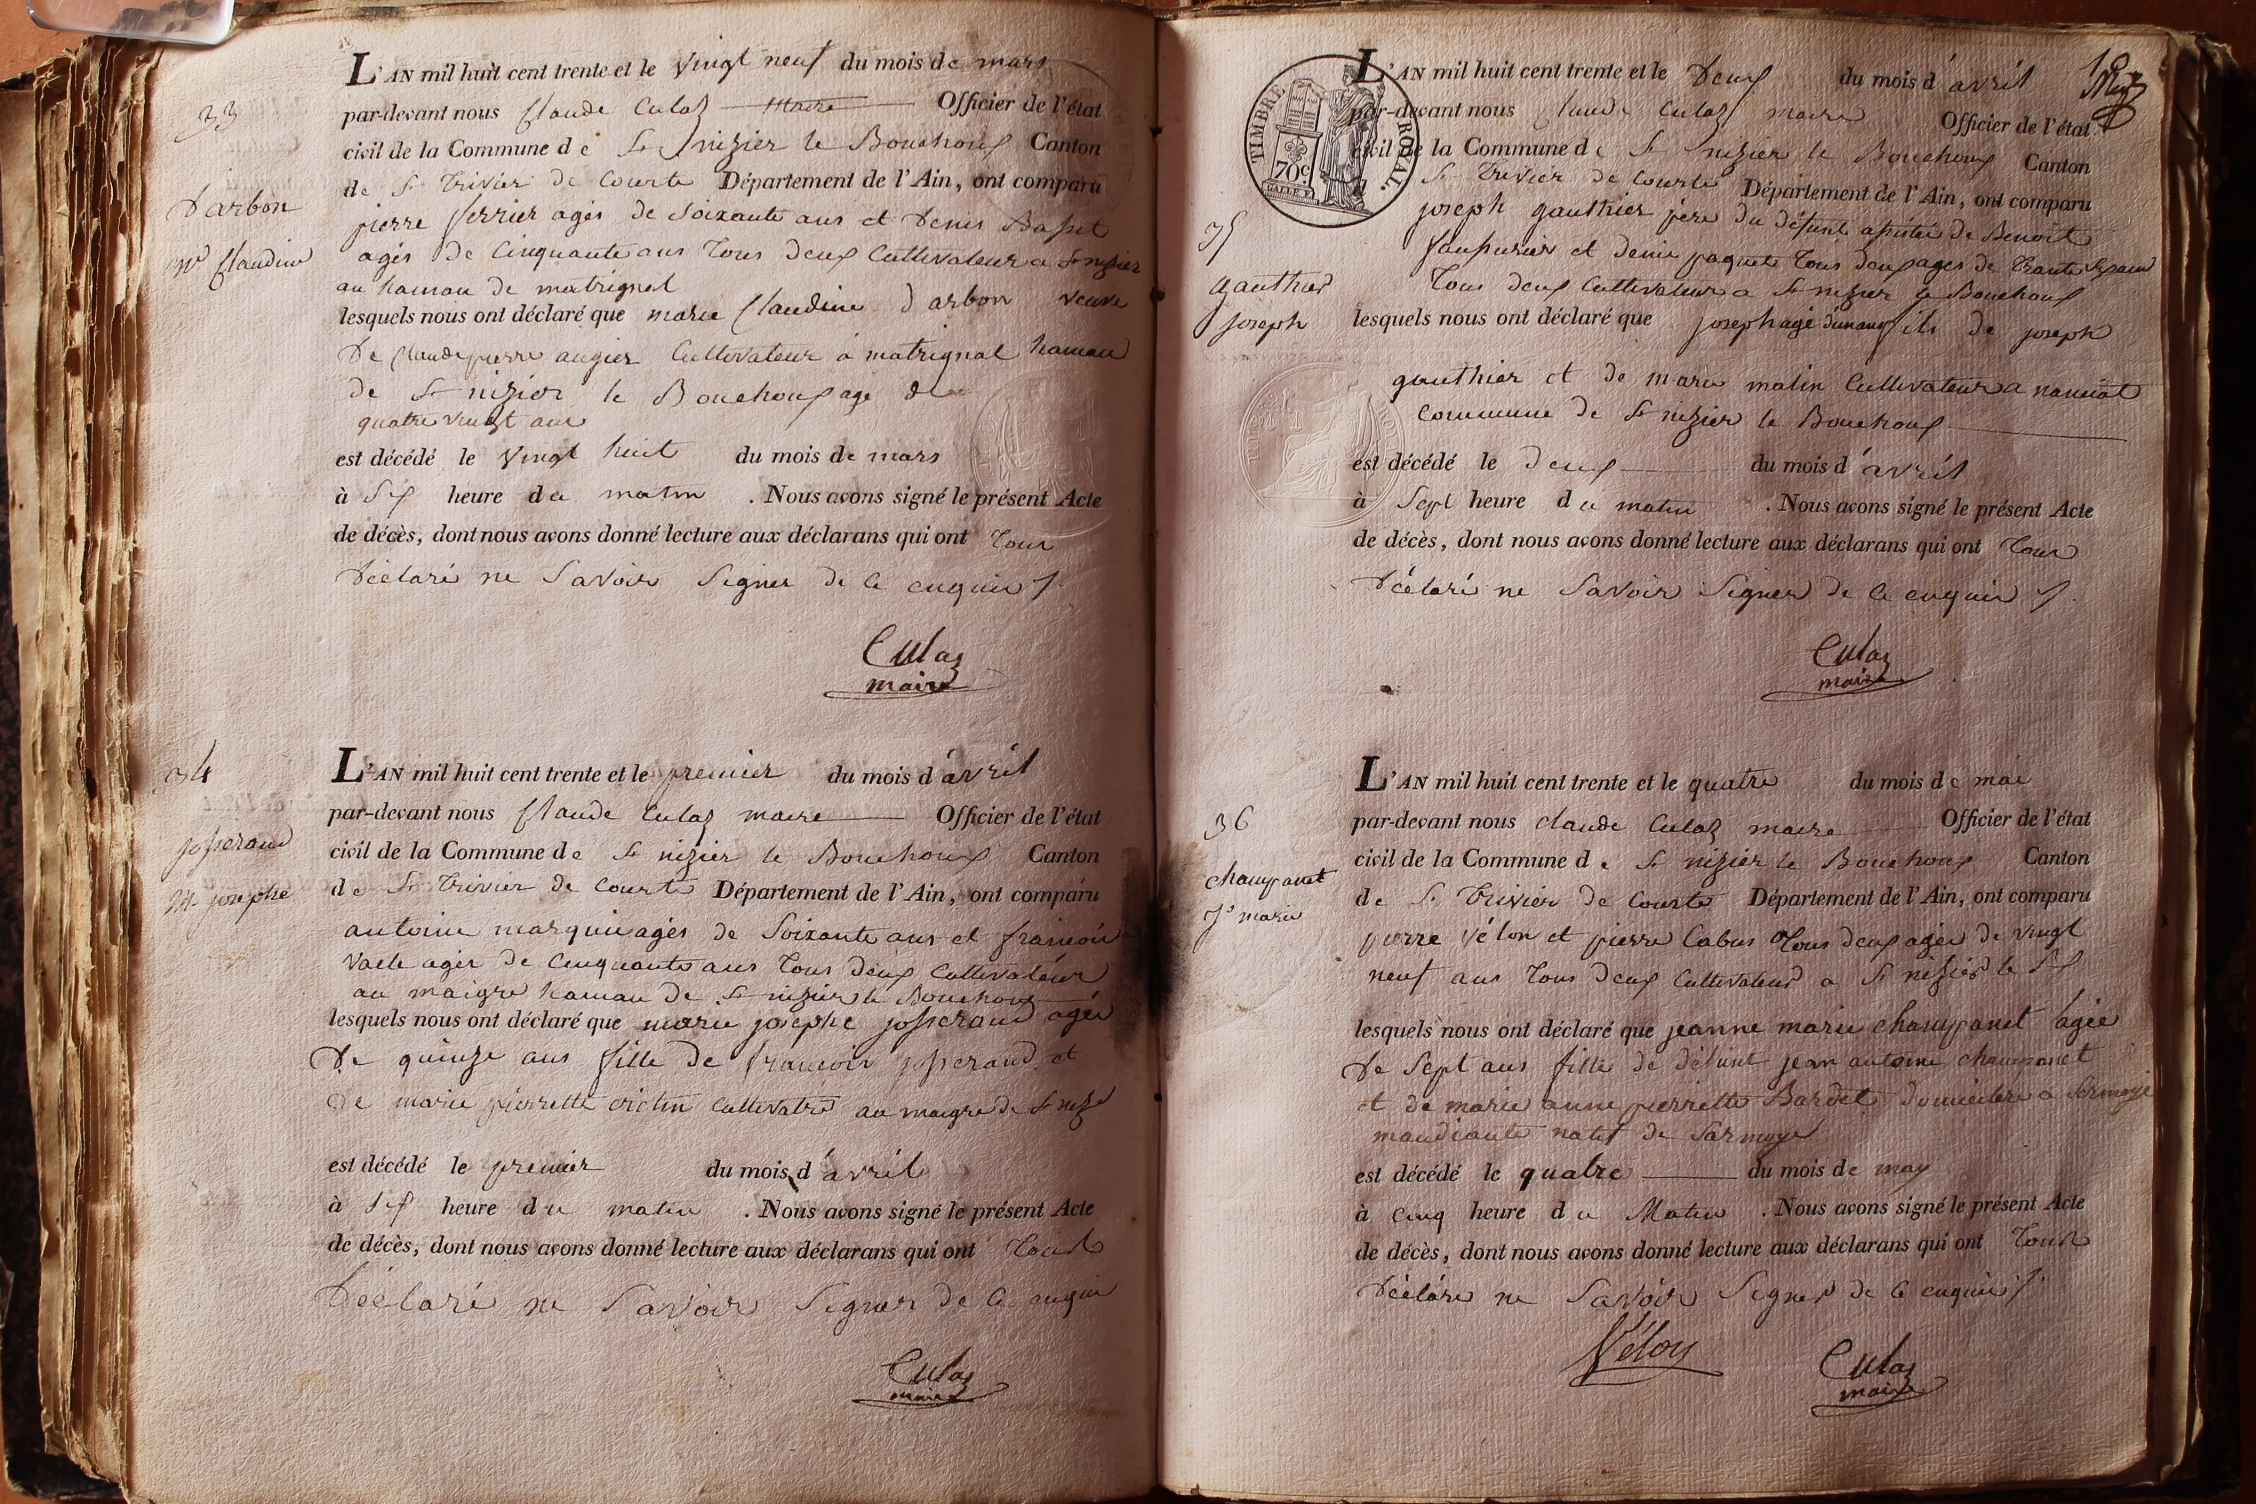 33
Darbon
Mie Claudine
L'AN mil huit cent trente et le vingt neuf du mois de mars
par-devant nous Claude Culaz maire Officier de l'état
civil de la Commune de St nizier le Bouchoux Canton
de St Trivier de Courte Département de l'Ain, ont comparu
pierre ferrier agés de soixante ans et Denis Basset
agés de Cinquante ans Tous deux Cultivateur a St nizier
au hamau de matrignat
lesquels nous ont déclaré que marie Claudine Darbon veuve
De Claude pierre augier Cultivateur à matrignat hamau
de St nizier le Bouchoux agé de
quatre vingt ans
est décédé le vingt huit du mois de mars
à six heure du matin . Nous avons signé le présent Acte
de décès, dont nous avons donné lecture aux déclarans qui ont Tous
Déclaré ne Savoir Signer de ce enquis
Culaz
maire
34
josserand
M. josephe
L'AN mil huit cent trente et le premier du mois d'avril
par-devant nous Claude Culaz maire Officier de l'état
civil de la Commune de St nizier le Bouchoux Canton
de St Trivier de Courte Département de l'Ain, ont comparu
antoine marquis agés de Soixante ans et francois
agés de Cinquante ans Tous deux Cultivateur
au maigre hamau de St nizier le Bouchoux
lesquels nous ont déclaré que marie josephe josserand agée
De quinze ans fille de francois josserand et
de marie pierrette Cultivatr au maigre de St nizi
est décédé le premier du mois d'avril
à six heure du matin . Nous avons signé le présent Acte
de décès, dont nous avons donné lecture aux déclarans qui ont Tous
Déclaré ne Savoir Signer de ce enquis
Culaz
maire
TIMBRE ROYAL.
70c
35
gauthier
joseph
L'AN mil huit cent trente et le Deux du mois d'avril
par-devant nous Claude Culaz maire Officier de l'état
civil de la Commune de St nizier le Bouchoux Canton
St Trivier de Courte Département de l'Ain, ont comparu
joseph gauthier père du défunt assisté de Benoit
et denis paquet Tous deux ages de Trante
Tous deux Cultivateur a St nizier le Bouchoux
lesquels nous ont déclaré que joseph agé dun an fils de joseph
gauthier et de marie matin Cultivateur a
commune de St nizier le Bouchoux
est décédé le deux du mois d'avril
à Sept heure du matin . Nous avons signé le présent Acte
de décès, dont nous avons donné lecture aux déclarans qui ont Tous
Déclaré ne Savoir Signer de ce enquis
Culaz
maire
36
champanet
Je marie
L'AN mil huit cent trente et le quatre du mois de mai
par-devant nous claude Culaz maire Officier de l'état
civil de la Commune de St nizier le Bouchoux Canton
de St Trivier de Courte Département de l'Ain, ont comparu
pierre vélon et pierre Cabus Tous deux agés de vingt
neuf ans Tous deux Cultivateur a St nizier le
lesquels nous ont déclaré que jeanne marie champanet agée
De Sept ans fille de défunt jean antoine champanet
et de marie anne pierrette Bardet domiciliere a Sermoyé
mandiante natif de Sarmoye
est décédé le quatre du mois de may
à cinq heure du Matin . Nous avons signé le présent Acte
de décès, dont nous avons donné lecture aux déclarans qui ont Tous
Déclaré ne Savoir Signer de ce enquis
Vélon
Culaz
maire